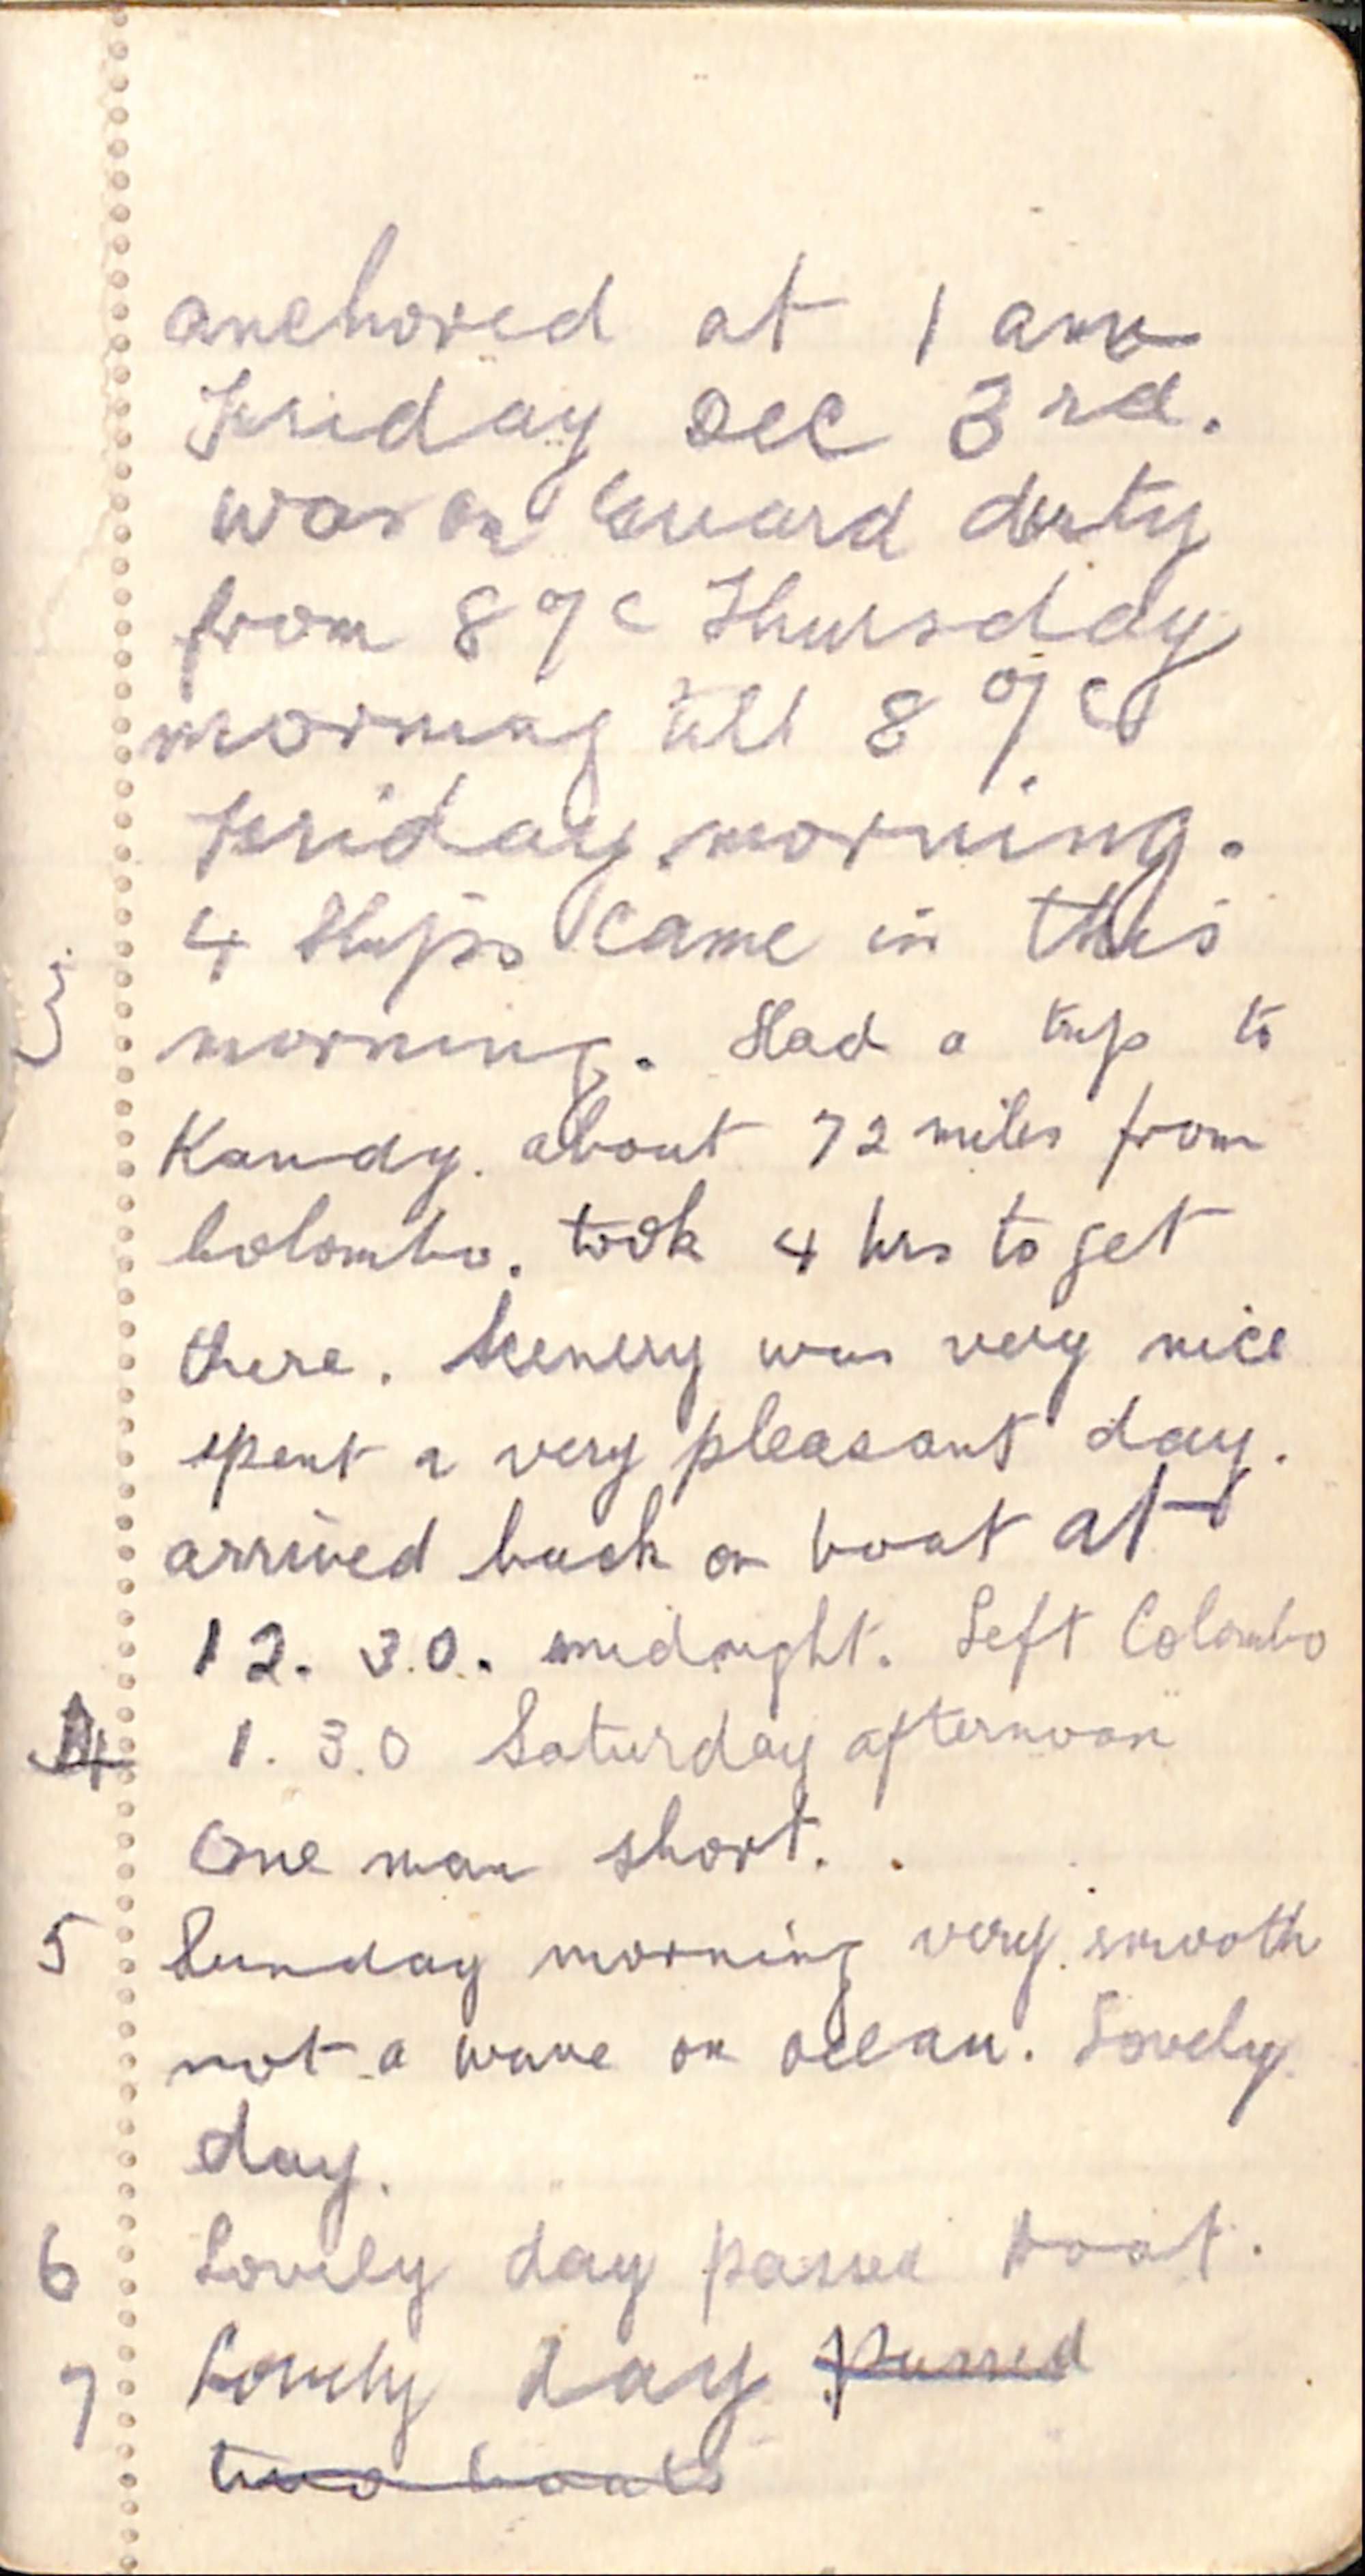 anchored at 1 am
Friday Dec 3rd.
was on Guard duty
from 8 o/c Thursday
morning till 8 o/c
Friday morning.
4 Ships came in this
3 morning. Had a trip to
Kandy. about 72 miles from
Colombo. took 4 hrs to get
there. Scenery was very nice
spent a very pleasant day.
arrived back on boat at
12. 30. midnight. Left Colombo
4 1. 30 Saturday afternoon
One man short.
5 Sunday morning very smooth
not a wave on ocean. Lovely
day.
6 Lovely day passed boat.
7 Lovely day passed
two boats